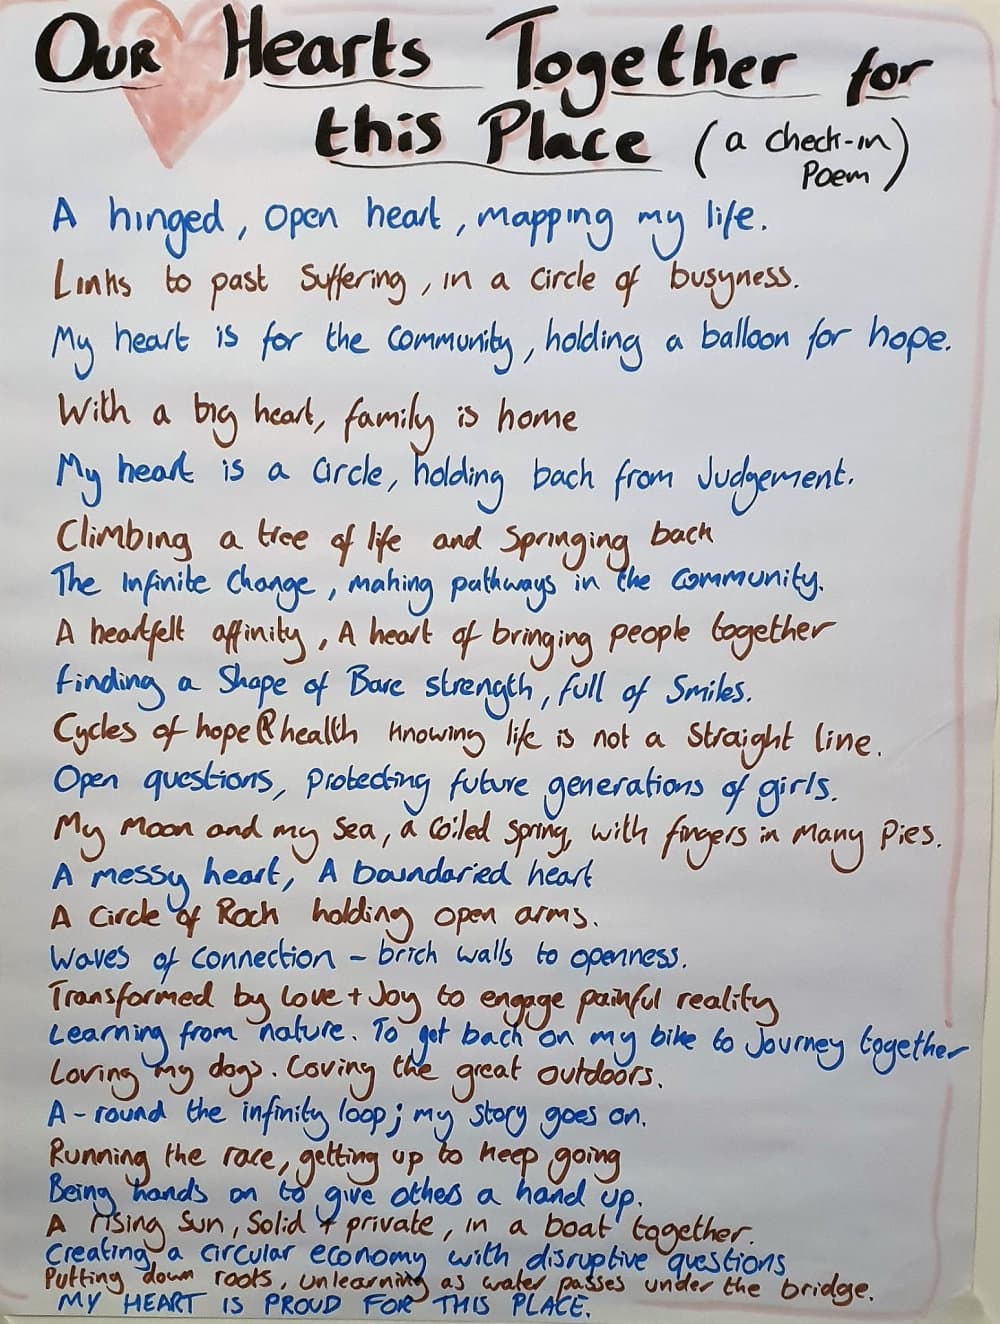 Our Hearts Together for
this Place (a check-in
Poem)
A hinged, open heart, mapping my life.
Links to past suffering, in a circle of busyness.
My heart is for the community, holding a balloon for hope.
With a big heart, family is home
My heart is a circle, holding back from Judgement.
Climbing a tree of life and springing back
The Infinite change, making pathways in the community.
A heartfelt affinity, A heart of bringing people together
Finding a Shape of Bare strength, full of Smiles.
Cycles of hope & health knowing life is not a straight line.
Open questions, protecting future generations of girls.
My Moon and my Sea, a coiled spring, with fingers in Many Pies.
A messy heart, A boundaried heart
A Circle of Rock holding open arms.
Waves of connection - brick walls to openness.
Transformed by love + Joy to engage painful reality
Learning from nature. To get back on my bike to Journey together
Loving my dogs. Loving the great outdoors.
A-round the infinity loop; my story goes on.
Running the race, getting up to keep going
Being hands on to give others a hand up.
A rising Sun, Solid + private, in a boat together.
Creating a circular economy with disruptive questions
Putting down roots, unlearning as water passes under the bridge.
MY HEART IS PROUD FOR THIS PLACE.